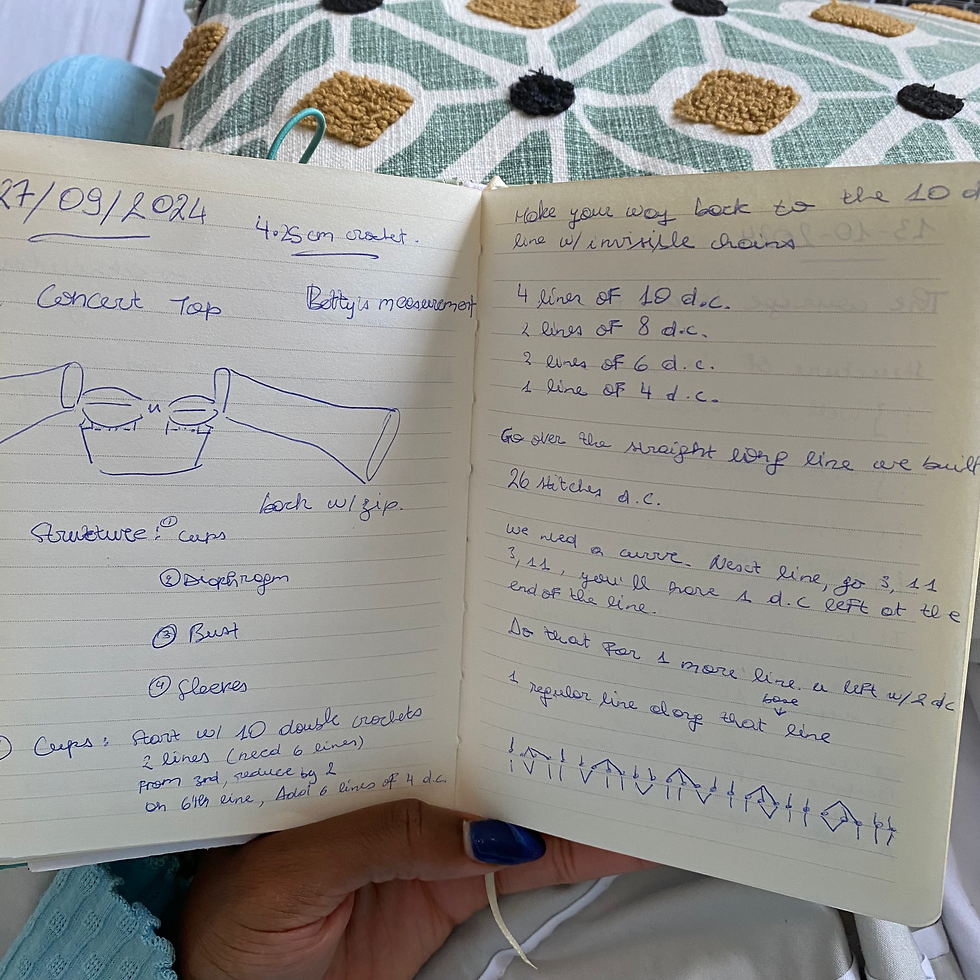 27/09/2024
4.25 cm crochet.
Concert Top
Betty's measurement
back w/ zip.
Structure: ① Cups
② Diaphragm
③ Bust
④ Sleeves
Cups: Start w/ 10 double crochets
2 lines (need 6 lines)
From 3rd, reduce by 2
on 6th line, Add 6 lines of 4 d.c.
Make your way back to the 10 d
line w/ invisible chains
4 lines of 10 d.c.
2 lines of 8 d.c.
2 lines of 6 d.c.
1 line of 4 d.c.
Go over the straight long line we built
26 stitches d.c.
We need a curve. Next line, go 3, 11
3, 11, you'll have 1 d.c left at the
end of the line.
Do that for 1 more line. u left w/ 2 dc
base
1 regular line along that line